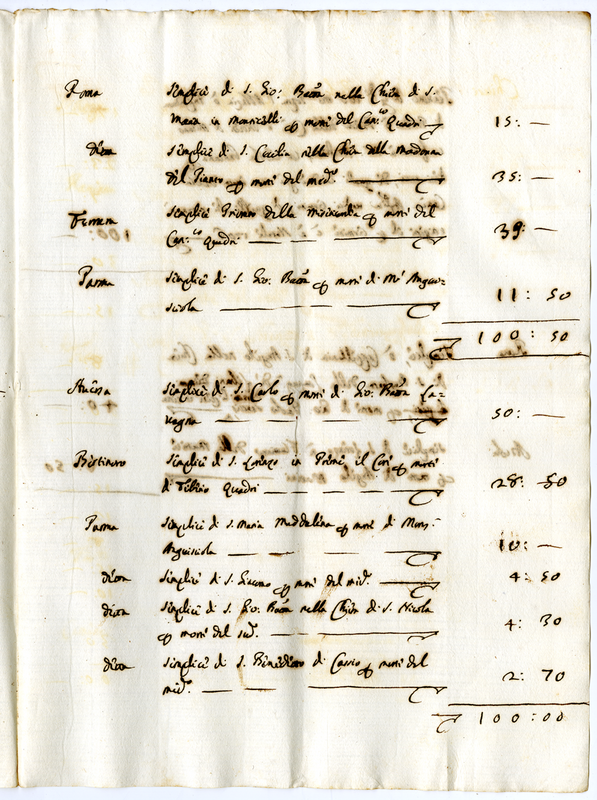 Roma Simplici di S. Gio: Batta nella Chiesa di S.
Maria in Monticelli per morte del Can.co Quadri 15: —
ditta Simplici di S. Cecilia nella Chiesa della Madonna
del Pianto per morte del med.o 35: —
Ferrara Simplici Priorato della Misericordia per morte del
Can.co Quadri 39: —
Parma Simplici di S. Gio: Batta per morte di Angui-
sciola 11: 50
100: 50
Ancona Simplici di S. Carlo per morte di Gio: Batta Ca-
50: —
Bertinoro Simplici di S. Lorenzo in per morte
di Quadri 28: 50
Parma Simplici di S. Maria Maddalena per morte di Mons.
Anguissiola 10: —
ditta Simplici di S. Giacomo per morte del med.o 4: 50
ditta Simplici di S. Gio: Batta nella Chiesa di S. Nicola
per morte del sud.o 4: 30
ditta Simplici di S. Benedetto di Cassio per morte del
med.o 2: 70
100:00